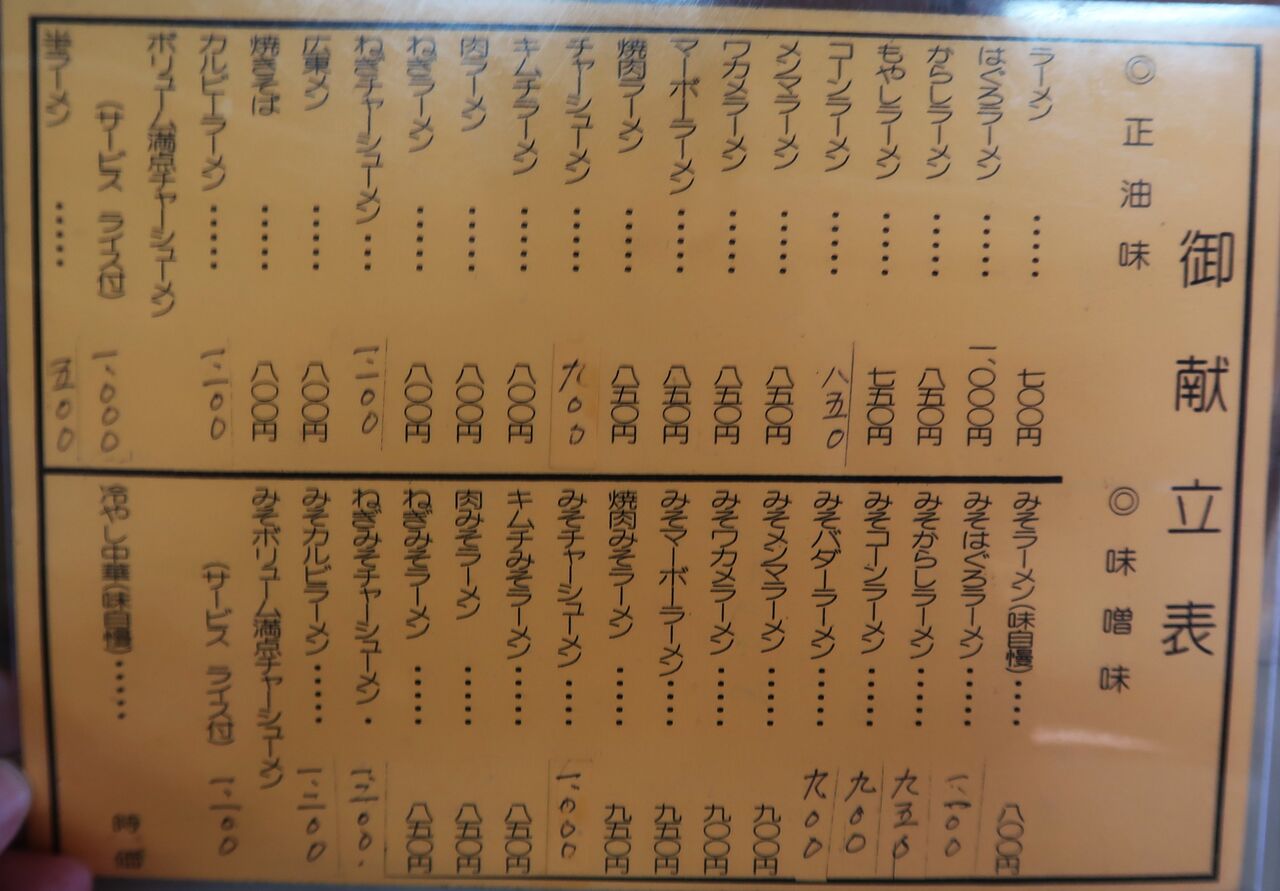 御献立表
◎正油味
ラーメン ‥‥‥ 七〇〇円
はぐろラーメン ‥‥‥ 一、〇〇〇円
からしラーメン ‥‥‥ 八五〇円
もやしラーメン ‥‥‥ 七五〇円
コーンラーメン ‥‥‥ 八五0
メンマラーメン ‥‥‥ 八五〇円
ワカメラーメン ‥‥‥ 八五〇円
マーボーラーメン ‥‥‥ 八五〇円
焼肉ラーメン ‥‥‥ 八五〇円
チャーシューメン ‥‥‥ 九00
キムチラーメン ‥‥‥ 八〇〇円
肉ラーメン ‥‥‥ 八〇〇円
ねぎラーメン ‥‥‥ 八〇〇円
ねぎチャーシューメン ‥‥ 一、一00
広東メン ‥‥‥ 八〇〇円
焼きそば ‥‥‥ 八〇〇円
カルビーラーメン ‥‥‥ 一、一00
ボリューム満点チャーシューメン
(サービス ライス付) 一、000
半ラーメン ‥‥‥ 五00
◎味噌味
みそラーメン(味自慢) ‥‥ 八〇〇円
みそはぐろラーメン ‥‥‥ 一、一00
みそからしラーメン ‥‥‥ 九五0
みそコーンラーメン ‥‥‥ 九00
みそバターラーメン ‥‥‥ 九00
みそメンマラーメン ‥‥‥ 九〇〇円
みそワカメラーメン ‥‥‥ 九〇〇円
みそマーボーラーメン ‥‥ 九五〇円
焼肉みそラーメン ‥‥‥ 九五〇円
みそチャーシューメン ‥‥‥ 一、000
キムチみそラーメン ‥‥‥ 八五〇円
肉みそラーメン ‥‥‥ 八五〇円
ねぎみそラーメン ‥‥‥ 八五〇円
ねぎみそチャーシューメン ・ 一、二00.
みそカルビラーメン ‥‥‥ 一、二00
みそボリューム満点チャーシューメン
(サービス ライス付) 一、一00
冷やし中華(味自慢) ‥‥‥ 時価